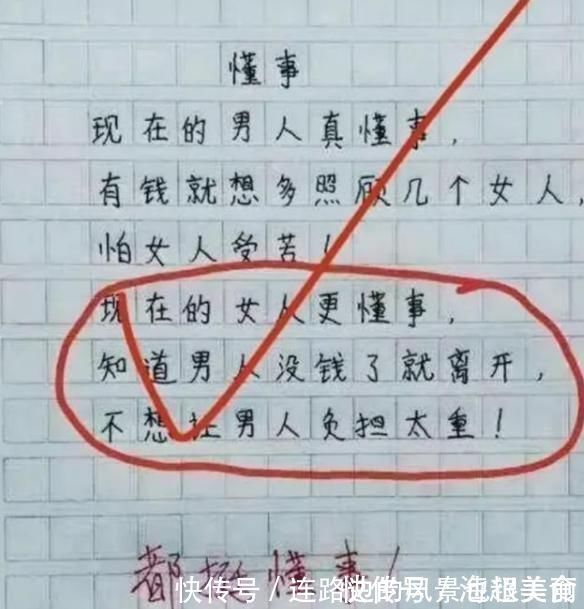 懂事
现在的男人真懂事,
有钱就想多照顾几个女人,
怕女人受苦!
现在的女人更懂事,
知道男人没钱了就离开,
不想让男人负担太重!
都挺懂事!
快传号/连路边的风景